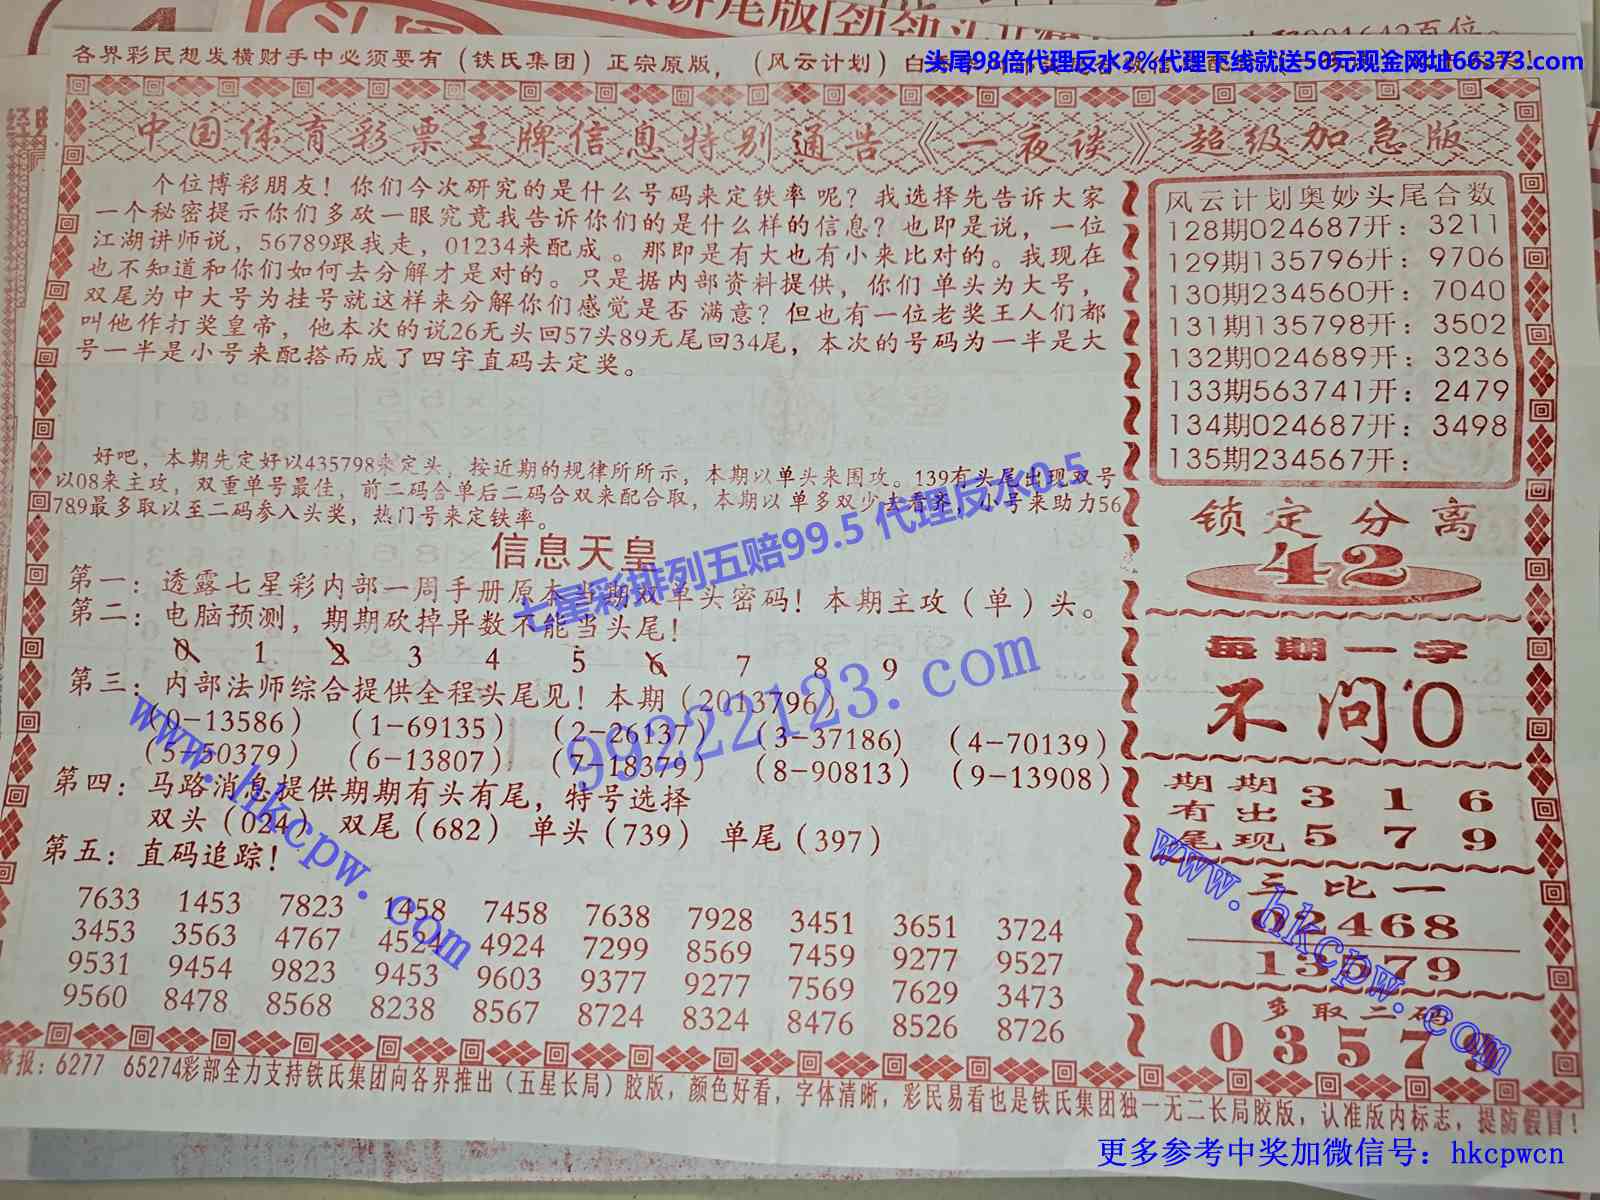 各界彩民想发横财手中必须要有（铁氏集团）正宗原版，（风云计划）白
头尾98倍代理反水2%代理下线就送50元现金网址66373.com
中国体育彩票王牌信息特别通告《一夜谈》超级加急版
个位博彩朋友！你们今次研究的是什么号码来定铁率呢？我选择先告诉大家
一个秘密提示你们多砍一眼究竟我告诉你们的是什么样的信息？也即是说，一位
江湖讲师说，56789跟我走，01234来配成。那即是有大也有小来比对的。我现在
也不知道和你们如何去分解才是对的。只是据内部资料提供，你们单头为大号，
双尾为中大号为挂号就这样来分解你们感觉是否满意？但也有一位老奖王人们都
叫他作打奖皇帝，他本次的说26无头回57头89无尾回34尾，本次的号码为一半是大
号一半是小号来配搭而成了四字直码去定奖。
好吧，本期先定好以435798来定头，按近期的规律所所示，本期以单头来围攻。139有头尾出现双号
以08来主攻，双重单号最佳，前二码合单后二码合双来配合取，本期以单多双少去看齐，小号来助力56
789最多取以至二码参入头奖，热门号来定铁率。
信息天皇
第一：透露七星彩内部一周手册原本当期双单头密码！本期主攻（单）头。
第二：电脑预测，期期砍掉异数不能当头尾！
0 1 2 3 4 5 6 7 8 9
第三：内部法师综合提供全程头尾见！本期（2013796）
（0-13586）（1-69135）（2-26137）（3-37186）（4-70139）
（5-50379）（6-13807）（7-18379）（8-90813）（9-13908）
第四：马路消息提供期期有头有尾，特号选择
双头（024）双尾（682）单头（739）单尾（397）
第五：直码追踪！
7633 1453 7823 1458 7458 7638 7928 3451 3651 3724
3453 3563 4767 4524 4924 7299 8569 7459 9277 9527
9531 9454 9823 9453 9603 9377 9277 7569 7629 3473
9560 8478 8568 8238 8567 8724 8324 8476 8526 8726
风云计划奥妙头尾合数
128期024687开：3211
129期135796开：9706
130期234560开：7040
131期135798开：3502
132期024689开：3236
133期563741开：2479
134期024687开：3498
135期234567开：
锁定分离
42
每期一字
不问0
期期 3 1 6
有出
尾现 5 7 9
三比一
02468
13579
多取二码
03579
警报：6277 65274彩部全力支持铁氏集团向各界推出（五星长局）胶版，颜色好看，字体清晰，彩民易看也是铁氏集团独一无二长局胶版，认准版内标志，提防假冒！
七星彩排列五赔99.5 代理反水0.5
99222123.com
www.hkcpw.com
www.hkcpw.com
更多参考中奖加微信号：hkcpwcn